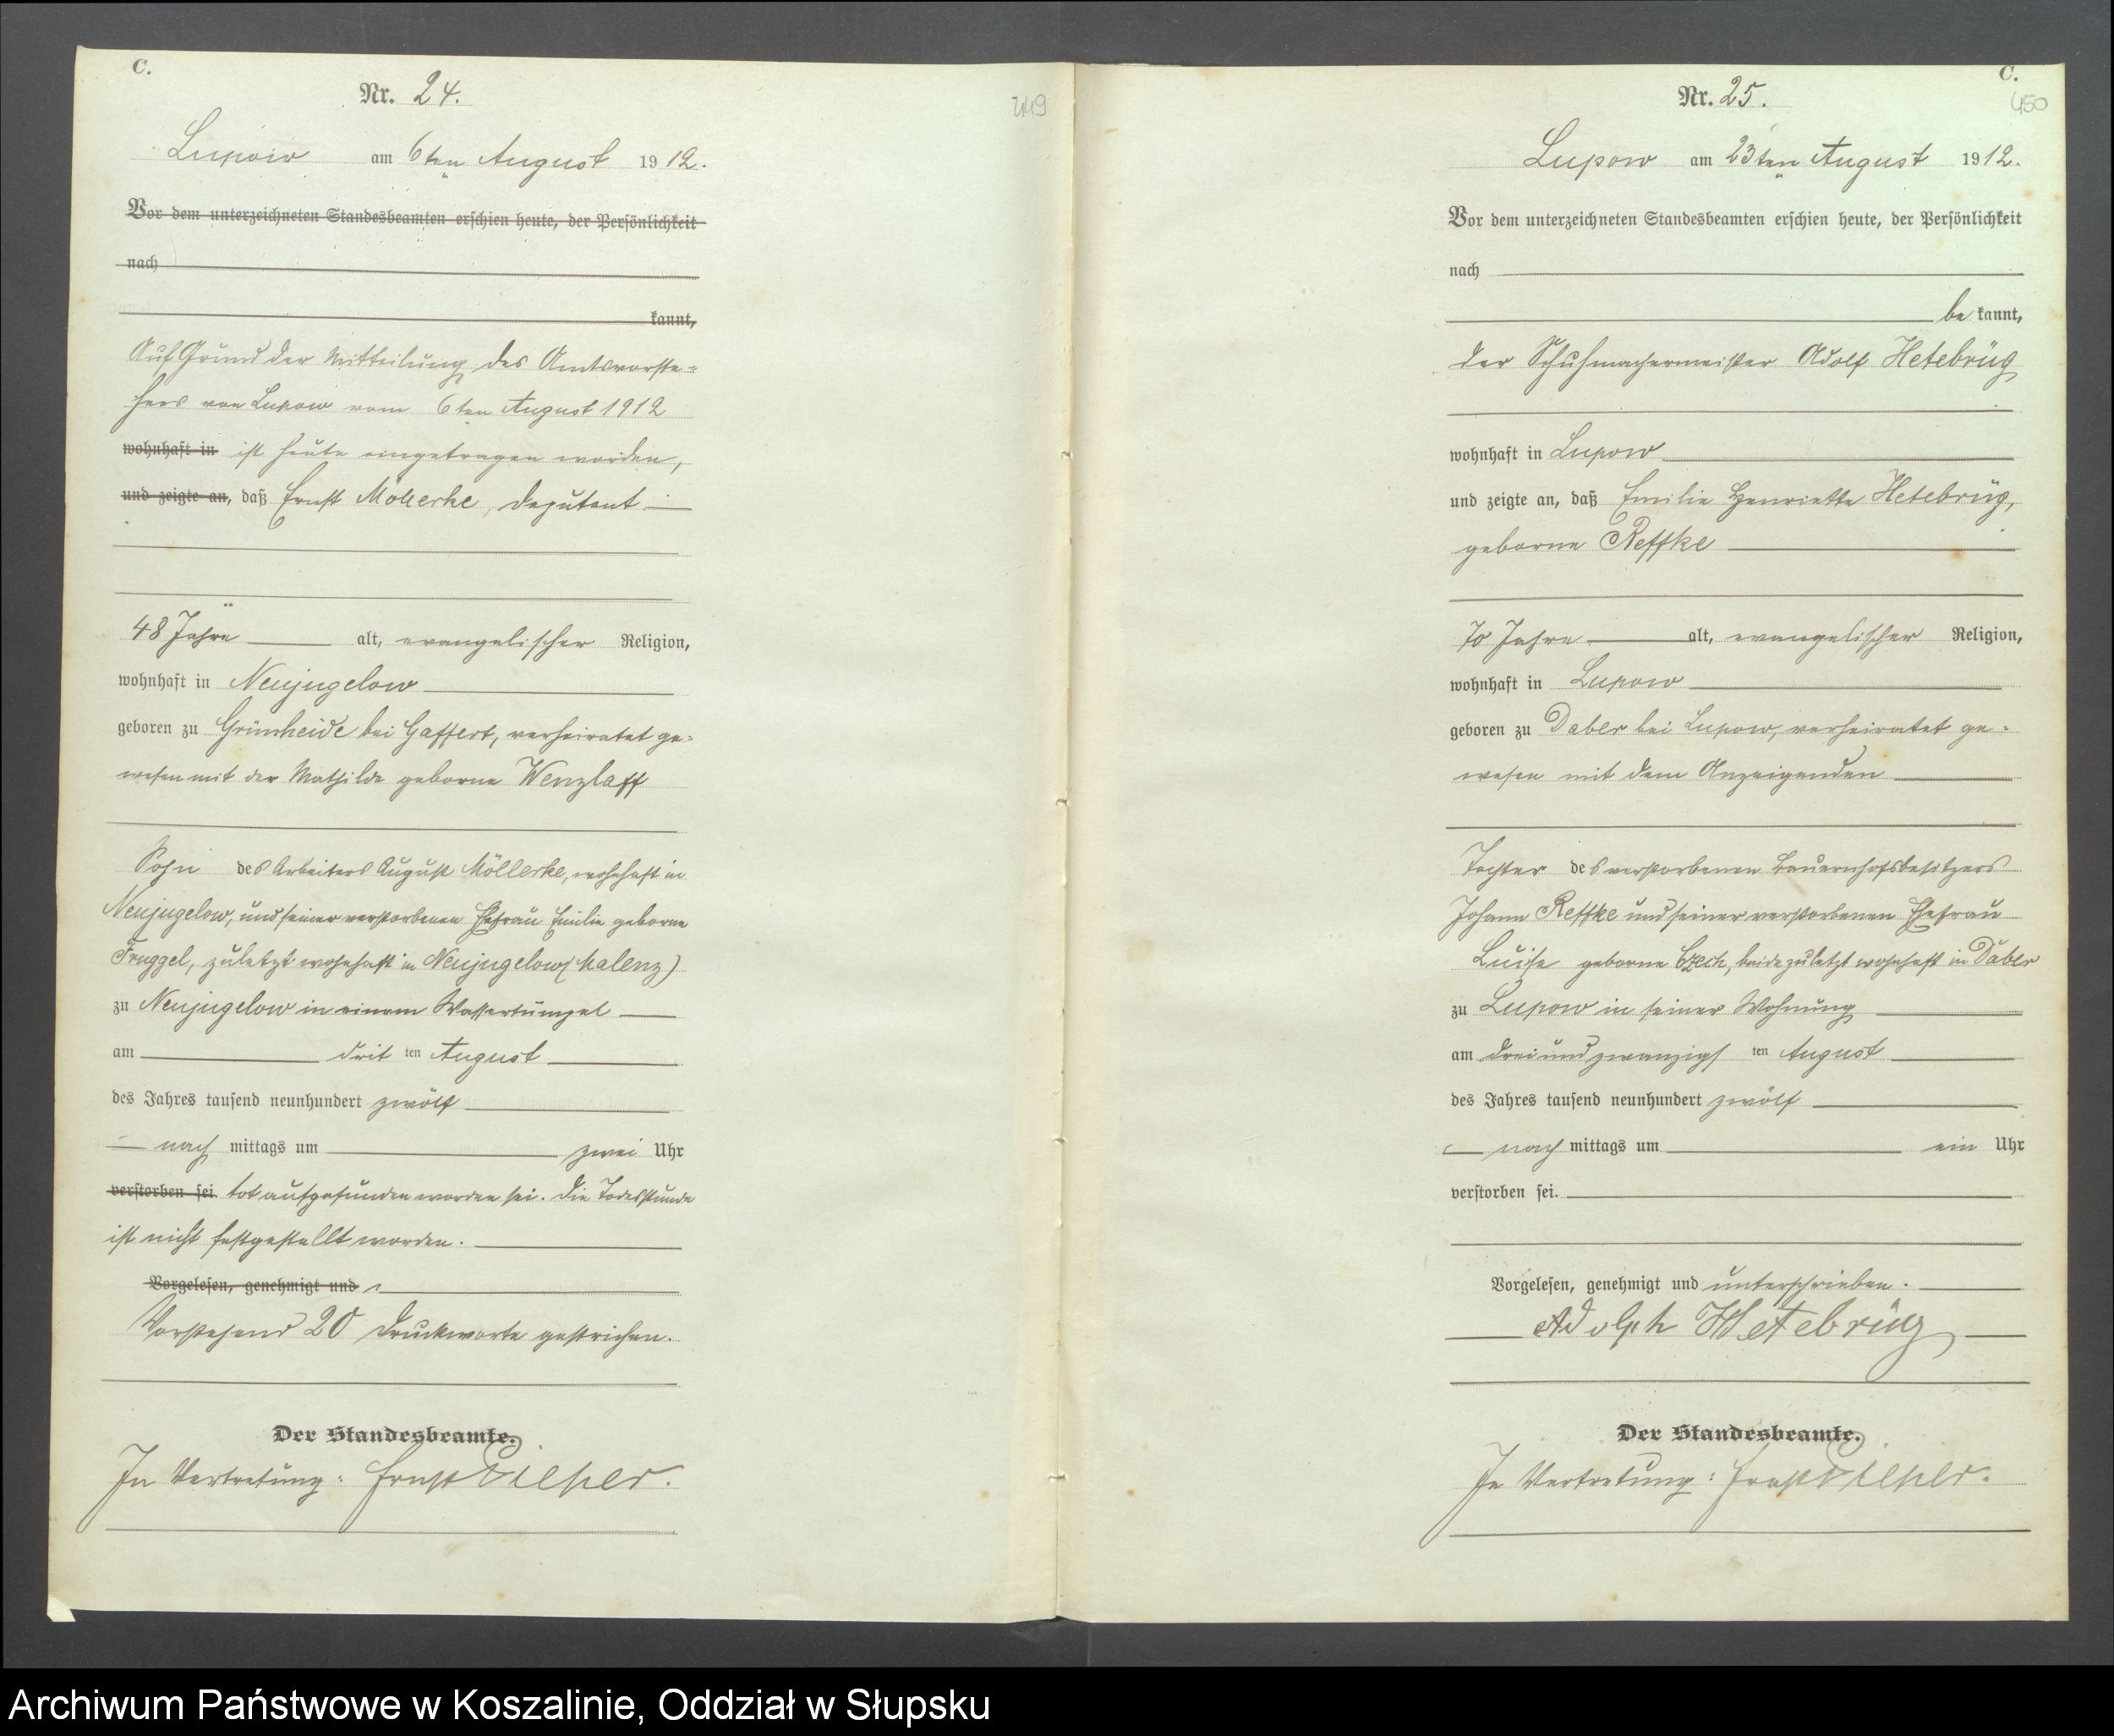 C.
Nr. 24.
449
Lupow am 6ten August 1912.
Vor dem unterzeichneten Standesbeamten erschien heute, der Persönlichkeit
nach
kannt,
Auf Grund der Mitteilung des Amtsvorste=
hers von Lupow vom 6ten August 1912
wohnhaft in ist heute eingetragen worden,
und zeigte an, daß Ernst Möllerke, Deputant
48 Jahre alt, evangelischer Religion,
wohnhaft in Neujugelow
geboren zu Grünheide bei Gaffert, verheiratet ge=
wesen mit der Mathilde geborne Wenzlaff
Sohn des Arbeiters August Möllerke, wohnhaft in
Neujugelow, und seiner verstorbenen Ehefrau Emilie geborne
Fruggel, zuletzt wohnhaft in Neujugelow (Malenz)
zu Neujugelow in einem Wassertümpel
am drit ten August
des Jahres tausend neunhundert zwölf
nach mittags um zwei Uhr
verstorben sei tot aufgefunden worden sei. Die Todesstunde
ist nicht festgestellt worden.
Vorgelesen, genehmigt und
Vorstehend 20 Druckworte gestrichen.
Der Standesbeamte.
In Vertretung: Ernst Pieper.
C.
Nr. 25.
450
Lupow am 23ten August 1912.
Vor dem unterzeichneten Standesbeamten erschien heute, der Persönlichkeit
nach
be kannt,
der Schuhmachermeister Adolf Hetebrüg
wohnhaft in Lupow
und zeigte an, daß Emilie Henriette Hetebrüg,
geborne Reffke
70 Jahre alt, evangelischer Religion,
wohnhaft in Lupow
geboren zu Daber bei Lupow, verheiratet ge=
wesen mit dem Anzeigenden
Tochter des verstorbenen Bauernhofsbesitzers
Johann Reffke und seiner verstorbenen Ehefrau
Luise geborne Czech, beide zuletzt wohnhaft in Daber
zu Lupow in seiner Wohnung
am dreiundzwanzigs ten August
des Jahres tausend neunhundert zwölf
nach mittags um ein Uhr
verstorben sei.
Vorgelesen, genehmigt und unterschrieben.
Adolph Hetebrüg
Der Standesbeamte.
In Vertretung: Ernst Pieper.
Archiwum Państwowe w Koszalinie, Oddział w Słupsku